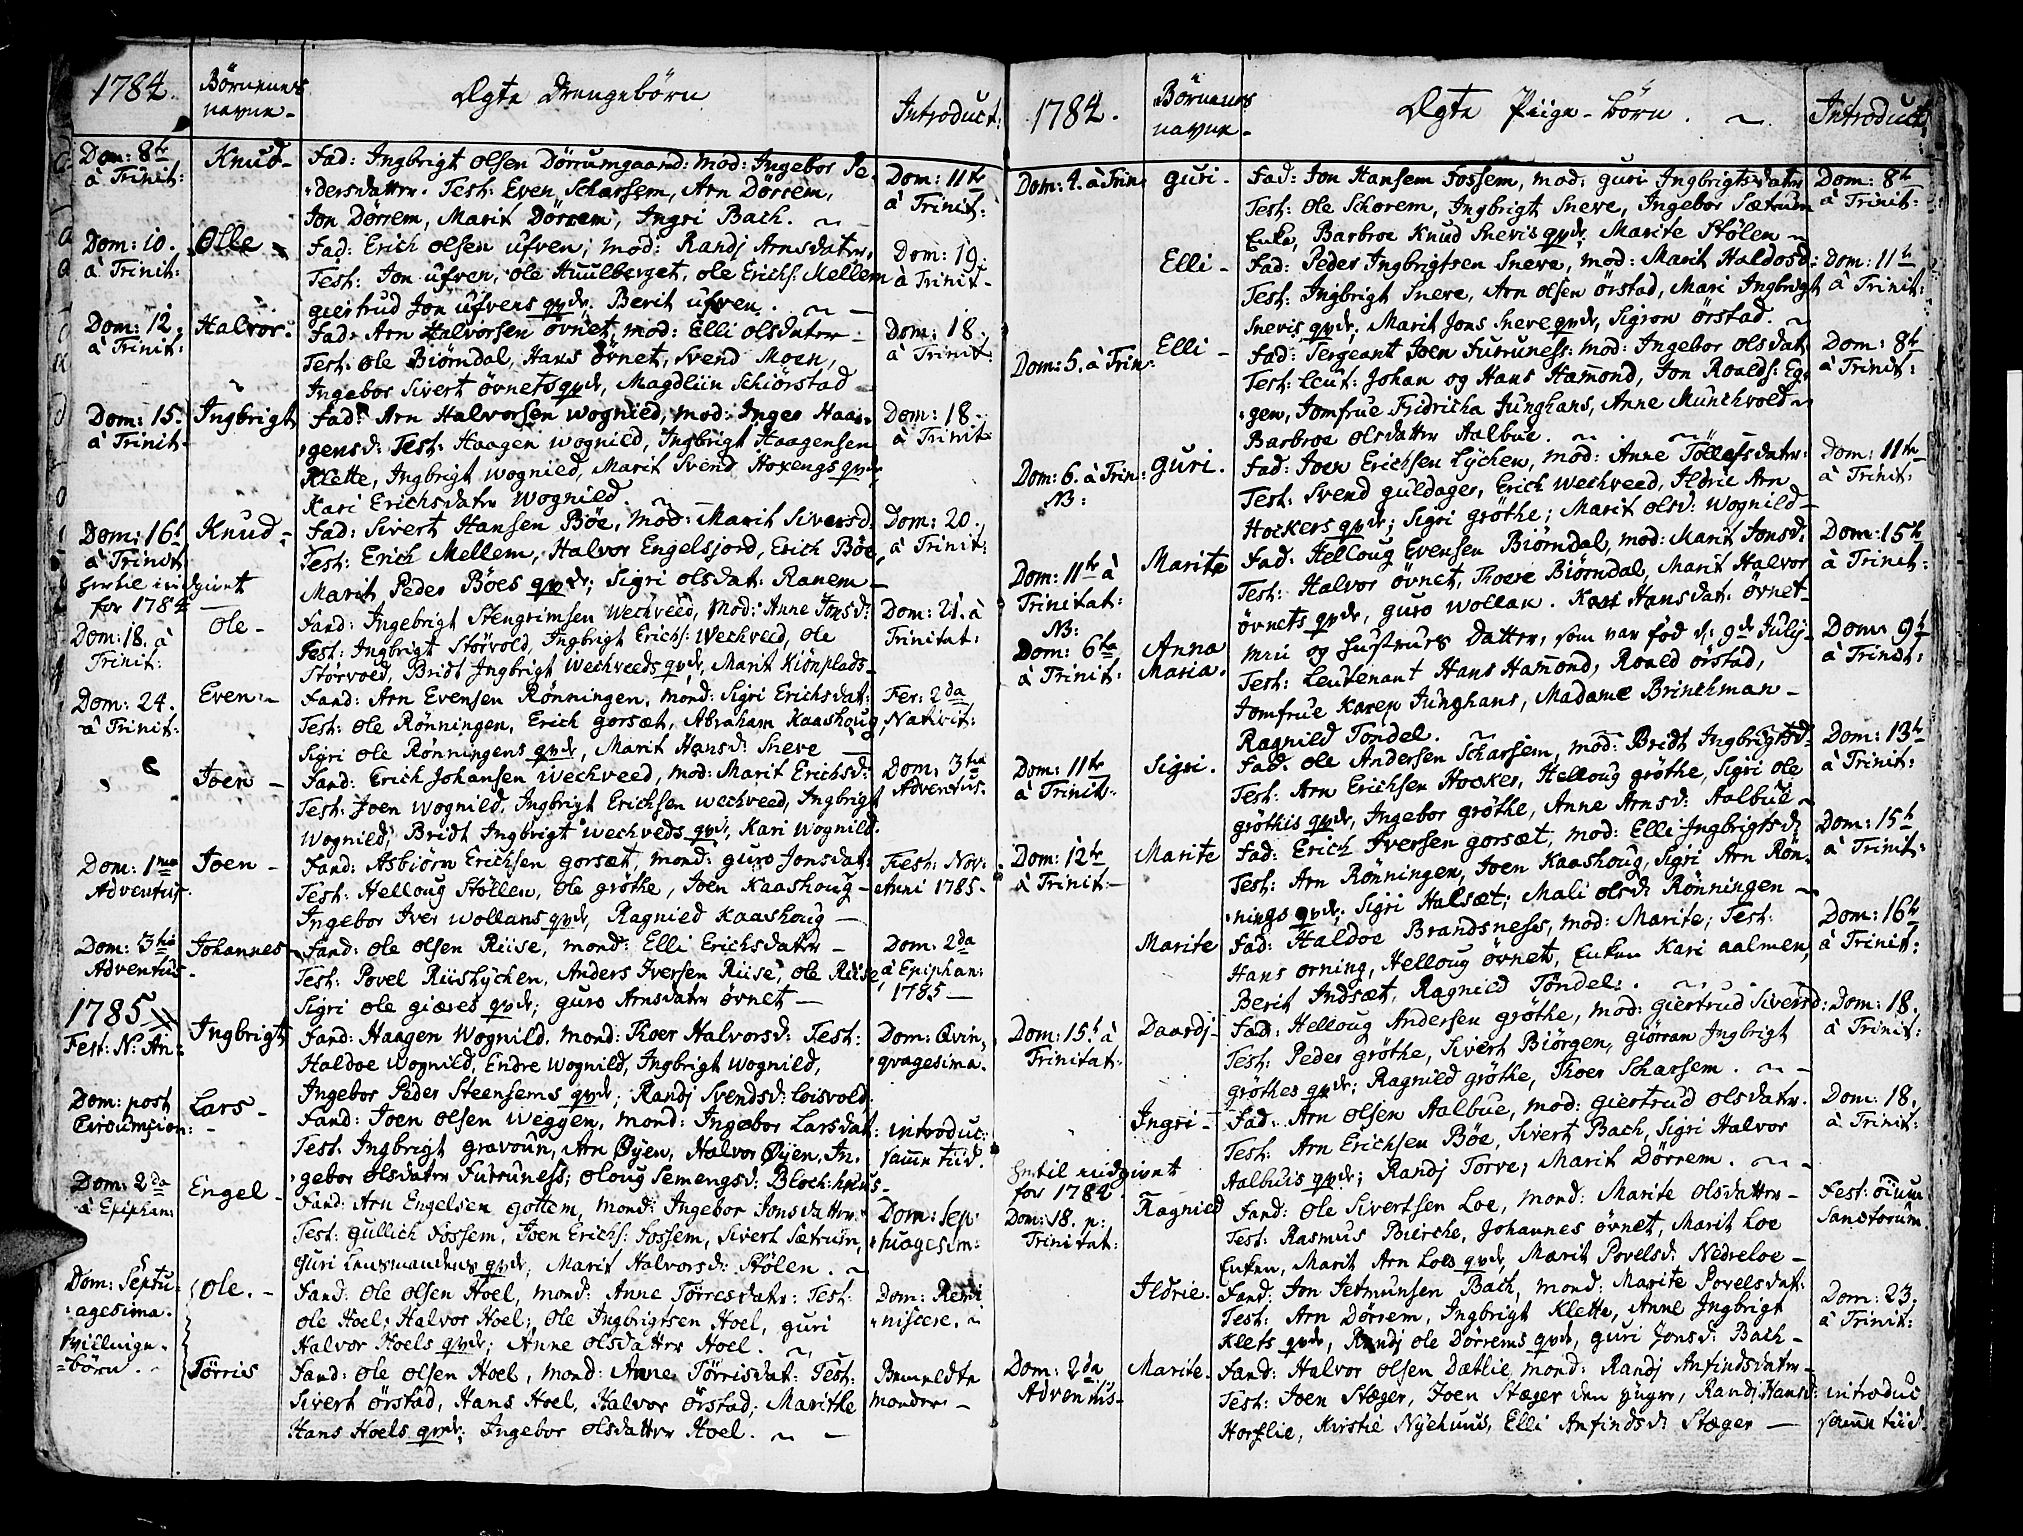 1784.
Börnenes
navne -
Ægte Drengebörn
Introduct:
Dom: 8te
à Trinit:
Knud -
Fad: Ingbrigt Olsen Dörrumgaard: mod: Ingebor Pe-
dersdatter. Test: Even Scharsem, Arn Dörrem,
Jon Dörrem, Marit Dörrem, Ingri Bach.
Dom: 11te
à Trinit:
Dom: 10.
à Trinit:
Olle
Fad: Erich Olsen Ufven, mod: Randj Arnsdatter,
Test: Jon Ufven, Ole Huulberget, Ole Erichs: Mellem
Giertrud Jon Ufvens qvde, Berit Ufven.
Dom: 19.
à Trinit-
Dom: 12.
à Trinit:
Halvor.
Fad: Arn Halvorsen Övnet, mod: Elli Olsdatter -
Test: Ole Biörndal, Hans Övnet, Svend Moen,
Ingebor Sivert Övnets qvde, Magdliin Schiörstad
Dom: 18.
à Trinit:
Dom: 15.
à Trinit-
Ingbrigt
Fad: Arn Halvorsen Wognild, mod: Inger Haa-
gensd: Test: Haagen Wognild, Ingbrigt Haagensen
Klette, Ingbrigt Wognild, Marit Svend Hoxengs qvde,
Kari Erichsdatr Wognild.
Dom: 18.
à Trinit:
Dom: 16t
à Trinit
Knud -
Fad: Sivert Hansen Böe, Mod: Marit Siversd:
Test: Erich Mellem, Halvor Engelsjord, Erich Böe,
Marit Peder Böes qvde; Sigri Olsdat: Ranem -
Dom: 20.
à Trinit:
hertil indgivet
for 1784
Dom: 18. à
Trinit:
Ole -
Fand: Ingebrigt Stengrimsen Wechveed, Mod: Anne Jonsd:
Test: Ingbrigt Störvold, Ingbrigt Erichs: Wechveed, Ole
Störvold, Bridt Ingbrigt Wechveeds qvde, Marit Kiönplads -
Dom: 21. à
Trinitat:
Dom: 24.
à Trinit:
Even: -
Fand: Arn Evensen Rönningen, mond: Sigri Erichsdat:
Test: Ole Rönningen, Erich Gorsæt, Abraham Kaashoug,
Sigri Ole Rönningens qvde, Marit Hansd: Sneve
Fer: 2da
Nativit:
Joen -
Fand: Erich Johansen Wechveed, mod: Marit Erichsd:
Test: Joen Wognild, Ingbrigt Erichsen Wechveed, Ingbrigt
Wognild, Bridt Ingbrigt Wechveds qvde, Kari Wognild.
Dom: 3tia
Adventus.
Dom: 1ma
Adventus.
Joen -
Fand: Asbiörn Erichsen Gorsæt, mond: Guro Jonsdat:
Test: Helloug Stöllen, Ole Gröthe, Joen Kaashoug -
Ingebor Iver Wollans qvde, Ragnild Kaashoug -
Fest: Nov:
Anni 1785.
Dom: 3tia
Adventus
Johannes -
Fand: Ole Olsen Riise, mond: Elli Erichsdatr -
Test: Povel Riislychen, Anders Iversen Riise, Ole Riise,
Sigri Ole Giæres qvde; Guro Arnsdatr Övnet -
Dom: 2da
à Epiphan:
1785 -
1785
Fest: N: An:
Ingbrigt
Fand: Haagen Wognild, mond: Thoer Halvorsd: Test:
Haldoe Wognild, Endre Wognild, Ingbrigt Wognild,
Ingebor Peder Steensems qvde; Randj Svendsd: Loisvold
Dom: Qvin-
qvagesima.
Dom: post
Circumsion:
Lars -
Fand: Joen Olsen Weggem, mond: Ingebor Larsdat:
Test: Ingbrigt Gravoun, Arn Øyen, Halvor Øyen, In-
gebor Olsdatr Futruness; Oloug Semengsd: Blochhuus -
introduc:
samme tiid.
Dom: 2da
à Epiphan:
Engel -
Fand: Arn Engelsen Gottem, mond: Ingebor Jonsdatter
Test: Gullich Fossem, Joen Erichs: Fossem, Sivert Sætrum,
Guri Lensmandens qvde; Marit Halvorsd: Stölen.
Dom: Sep-
tuagesim:
Dom: Septu-
agesima.
tvillinge-
börn.
Ole. -
Fand: Ole Olsen Hoel, mond: Anne Törresdatr: Test:
Ole Hoel; Halvor Hoel, Ole Ingbrigtsen Hoel, Guri
Halvor Hoels qvde; Anne Olsdatter Hoel.
Dom: Remi
niscere.
Törris
Fand: Ole Olsen Hoel, mond: Anne Törrisdat: Test:
Sivert Örstad, Hans Hoel, Halvor Örstad; Marithe
Hans Hoels qvde; Ingebor Olsdatter Hoel.
Bemeldte
moder -
1784.
Börnenes
navne -
Ægte Piige - börn.
Introduct:
Dom: 4. à Trin:
Guri.
Fad: Jon Hansem Fossem, mod: Guri Ingbrigtsdatr
Test: Ole Schorem, Ingbrigt Sneve, Ingebor Sætrum
Enke, Barbroe Knud Snevis qvde, Marite Stölen
Dom: 8t
à Trinit:
Elli -
Fad: Peder Ingbrigtsen Sneve, mod: Marit Haldosd:
Test: Ingbrigt Sneve, Arn Olsen Örstad, Mari Ingbrigt
Snevis qvde, Marit Jons Sneve qvde, Sigron Örstad.
Dom: 11te
à Trinit:
Dom: 5. à Trin:
Elli -
Fad: Sergeant Joen Futruness: mod: Ingebor Olsdat:
Test: Leut: Johan og Hans Hamond, Jon Roalds: Eg-
gen, Jomfrue Fridricha Junghans, Anne Munchvold
Barbroe Olsdatter Aalbue.
Dom: 8t
à Trinit:
Dom: 6. à Trin:
NB:
Guri.
Fad: Joen Erichsen Lychen, mod: Anne Töllefsdatr:
Test: Svend Guldager, Erich Wechveed, Ildrie Arn
Hockers qvde; Sigri Gröthe; Marit Olsd: Wognild -
Dom: 11te
à Trinit:
Dom: 11te à
Trinitat:
Marite
Fad: Helloug Evensen Biörndal, mod: Marit Jonsd:
Test: Halvor Övnet, Thoere Biörndal, Marit Halvor
Övnets qvde, Guro Wollan. Kari Hansdat: Övnet -
Dom: 15t
à Trinit:
NB:
Dom: 6te
à Trinit:
Anna
Maria.
min og hustrues datter, som var föd d: 9de Julij -
Test: Leutenant Hans Hamond, Roald Örstad,
Jomfrue Karen Junghans, Madame Brinchman -
Ragnild Tondel.
Dom. 9t
à Trinit:
Dom: 11te
à Trinit:
Sigri.
Fad. Ole Andersen Scharsem, mod: Bridt Ingbrigtsd -
Test: Arn Erichsen Hocker, Helloug Gröthe, Sigri Ole
Gröthis qvde, Ingebor Gröthe, Anne Arnsd: Aalbue -
Dom: 13te
à Trinit:
Dom: 12te
à Trinit:
Marite
Fad: Erich Iversen Gorsæt, mod: Elli Ingbrigtsd:
Test: Arn Rönningen, Joen Kaashoug, Sigri Arn Rön-
nings qvde; Sigri Halsæt; Mali Olsd: Rönningen -
Dom: 15t
à Trinit:
Marite
Fad: Haldoe Brandsness, mod: Marite; Test:
Hans Orning, Helloug Övnet, Enken Kari Aalmen,
Berit Indsæt, Ragnild Töndel.
Dom: 16te
à Trinit:
Dom: 15t à
Trinitat:
Daardj -
Fad: Helloug Andersen Gröthe, mod: Giertrud Siversd:
Test: Peder Gröthe, Sivert Biörgen, Giörran Ingbrigt
Gröthes qvde; Ragnild Gröthe, Thoer Scharsem.
Dom: 18.
à Trinit:
Ingri -
Fad: Arn Olsen Aalbue, mod: Giertrud Olsdatr.
Test: Arn Erichsen Böe, Sivert Bach, Sigri Halvor
Aalbuis qvde; Randj Torve, Marit Dörrem.
Dom: 18.
à Trinit:
hertil indgivet
for 1784
Dom: 18. p:
Trinitat:
Ragnied
Fand: Ole Sivertsen Loe, mond: Marite Olsdatter -
Test: Rasmus Bierche, Johannes Övnet, Marit Loe
Enken, Marit Arn Loes qvde, Marit Povelsd: Nedreloe -
Fest: Oium
Sanctorum
Ildrie.
Fand: Jon Jetmunsen Bach, mond: Marite Povelsdat:
Test: Arn Dörrem, Ingbrigt Klette, Anne Ingbrigt
Klets qvde, Randj Ole Dörrems qvde, Guri Jonsd: Bach -
Dom: 23.
à Trinit:
Dom: 2da
Adventus -
Marite.
Fand: Halvor Olsen Dætlie, mond: Randj Anfindsdatr -
Test: Joen Stæger, Joen Stæger den yngre, Randj Hansd:
Horslie, Kirstie Nyehuus, Elli Anfindsd: Stæger -
introduc
samme tiid.